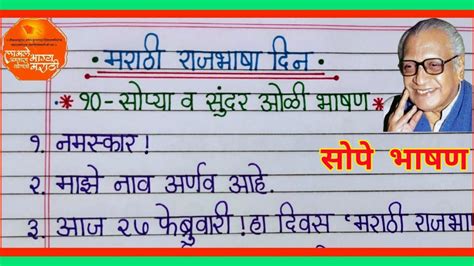 लाभले
आम्हांस भाग्य
बोलतो मराठी
मराठी राजभाषा दिन
* १०-सोप्या व सुंदर ओळी भाषण *
सोपे भाषण
१. नमस्कार!
२. माझे नाव अर्णव आहे.
३. आज २७ फेब्रुवारी! हा दिवस 'मराठी राजभा